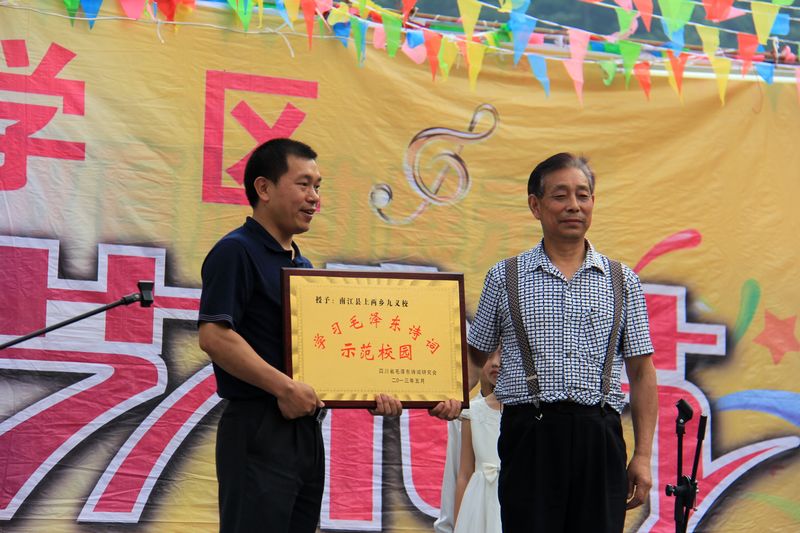 学区
授予:南江县上两乡九义校
学习毛泽东诗词
示范校园
四川省毛泽东诗词研究会
二〇一三年五月